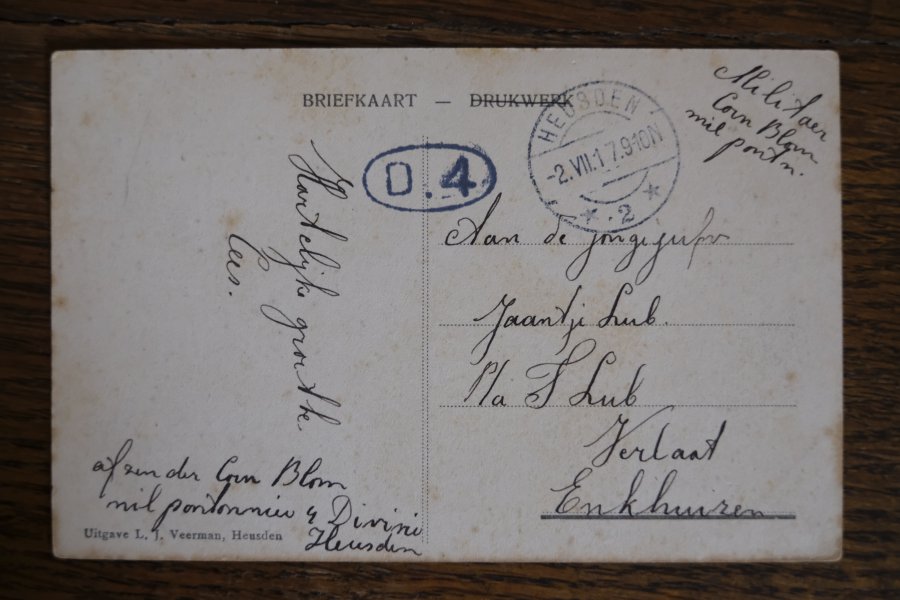 BRIEFKAART — DRUKWERK
HEUSDEN
-2.VII.17.9-10N
* . 2 *
D.4
Militaer
Corn Blom
mil pontn.
Hartelijke groethe
Cees.
Aan de
Jaantje Lub.
P/a S Lub
Verlaat
Enkhuizen
afzender Corn Blom
mil pontonnier 4 Divisie
Heusden
Uitgave L. J. Veerman, Heusden